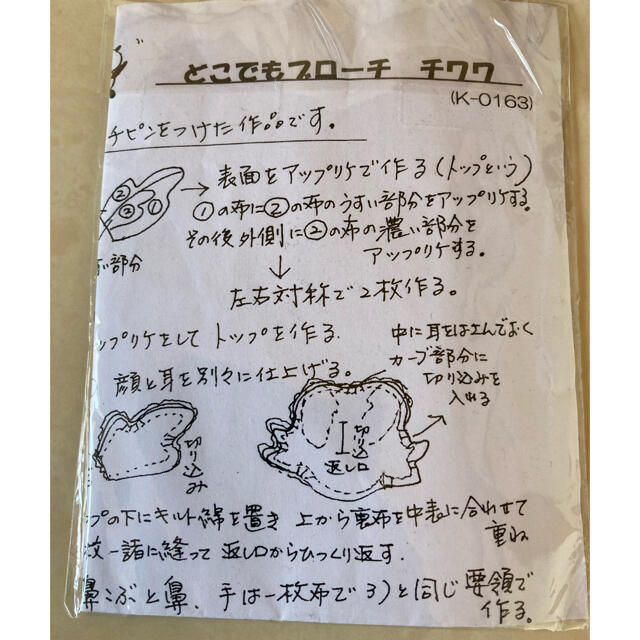 どこでもブローチ チワワ
(K-0163)
チピンをつけた作品です。
→ 表面をアップリケで作る(トップという)
② ③ ①
①の布に②の布のうすい部分をアップリケする。
その後外側に②の布の濃い部分を
アップリケする。
い部分
↓
左右対称で2枚作る。
ップリケをして トップを作る.
中に耳をはさんでおく
顔と耳を別々に仕上げる。
カーブ部分に
切り込みを
入れる
切り込み
返し口
プの下にキルト綿を置き 上から裏布を中表に合わせて
重ね
枚一諸に縫って 返し口からひっくり返す.
鼻こぶと鼻. 手は一枚布で3)と同じ要領で
作る。